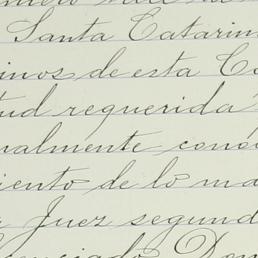 Santa Catarin
inos de esta C
tud requerida
nalmente conoc
iento de lo ma
Juez segund
cenciado Dom